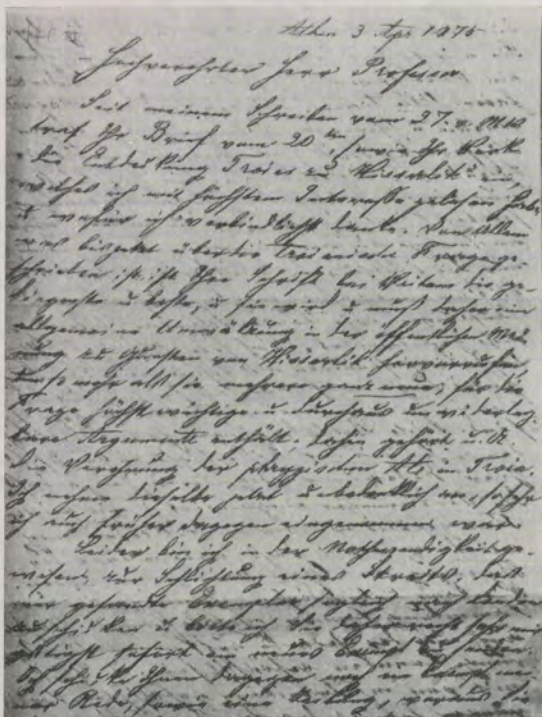 Athen 3 Apr 1875
Hochverehrter Herr Professor
Seit meinem Schreiben vom 27 v. Mts
traf Ihr Brief vom 20ten, sowie Ihr Werk
die Entdeckung Troias zu Hissarlik ein,
welches ich mit höchstem Interesse gelesen habe
u wofür ich verbindlichst danke. Von Allem
was bisjetzt über die Troianische Frage ge-
schrieben ist, ist Ihre Schrift bei Weitem die ge-
diegenste u beste, u sie wird u muß daher eine
allgemeine Umwälzung in der öffentlichen Mei-
nung zu Gunsten von Hissarlik hervorrufen,
um so mehr als sie mehrere ganz neue, für die
Frage höchst wichtige u. durchaus unwiderleg-
bare Argumente enthält; dahin gehört u. A.
die Verehrung der phrygischen Ate in Troia.
Ich nehme dieselbe jetzt unbedenklich an, so sehr
ich auch früher dagegen eingenommen war
Leider bin ich in der Nothwendigkeit ge-
wesen, zur Schlichtung eines Streits, das
mir gesandte Exemplar sogleich nach
zu schicken u bitte ich Sie
sofort ein neues zu senden.
Ich schicke Ihnen dagegen noch ein
ner Rede, sowie eine Zeitung, woraus Sie